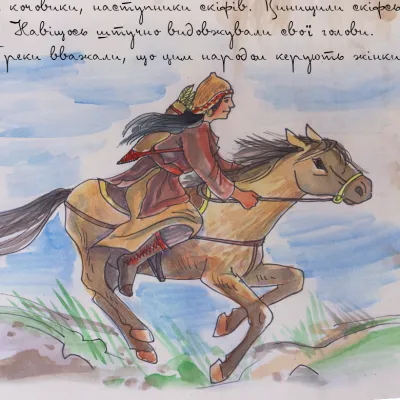 кочовики, наступники скіфів. Винищили скіфсь
Навіщось штучно видовжували свої голови.
Греки вважали, що цим народом керують жінки